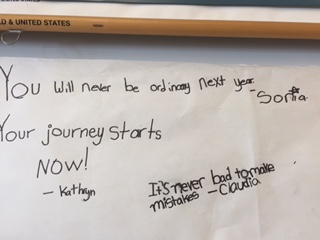 D & UNITED STATES
You will never be ordinary next year.
-Sonia
Your journey starts
NOW!
- Kathryn
It's never bad to make
mistakes - Claudia